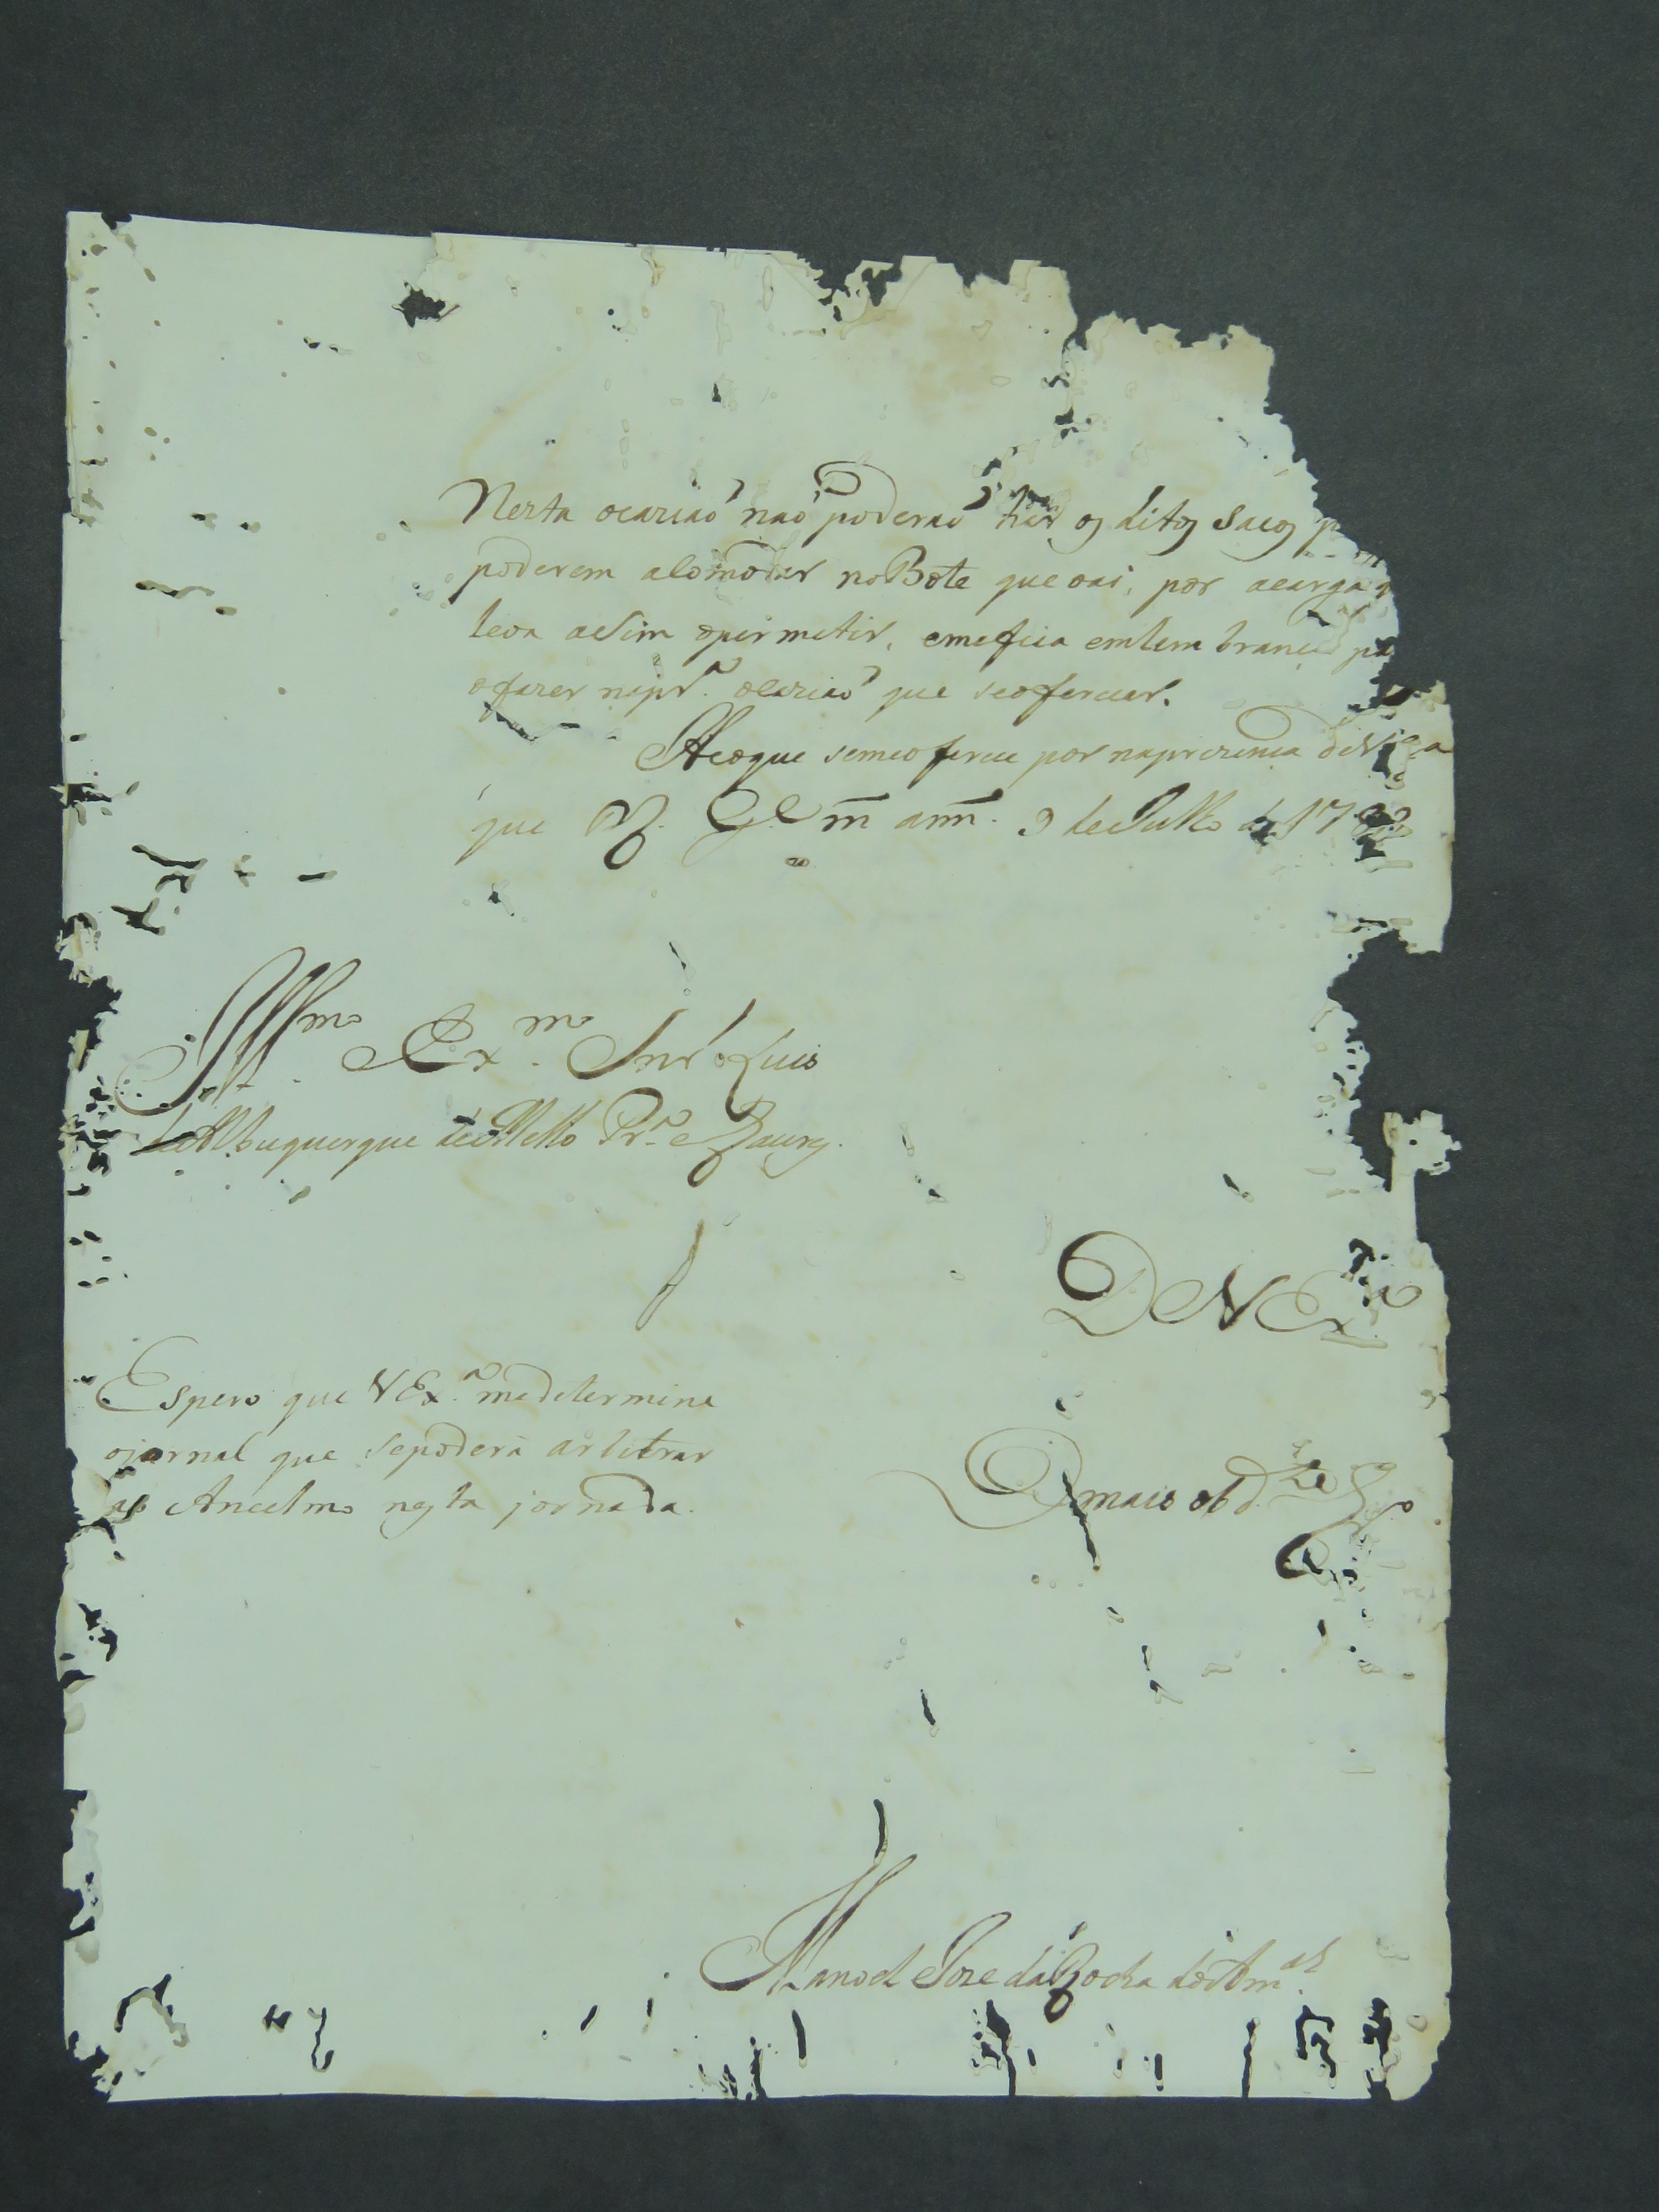 Nesta ocaziaõ naõ poderaõ hir os ditos sacos
poderem acomodar no Bote que vai, por acarga
leva asim opermetir, emefica emlembrança
ofazer napr.ª ocaziaõ que seoferecer.
He oque semeoferece por naprezença de V
que D.s G.e m. ann. 9 de Julho de 17
Ill.mo Ex.mo Snr' Luis
de Albuquerque de Mello Pr.ª e Caceres.
De V Ex.ª
Espero que V Ex.ª medetermine
ojornal que sepoderá arbitrar
ao Ancelmo nesta jornada.
O mais obd.te S
Manoel Joze da Rocha do Am.al